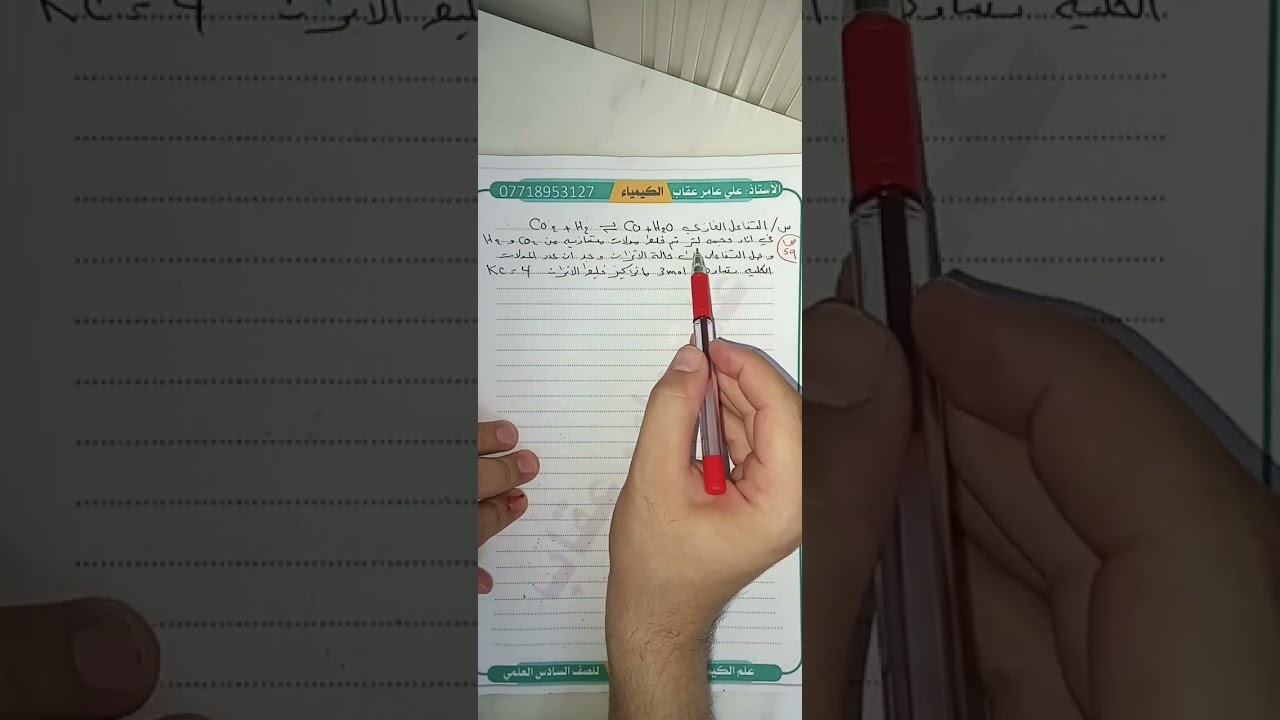 الأستاذ: علي عامر عقاب الكيمياء 07718953127
س/ التفاعل الغازي CO2 + H2 ⇌ CO + H2O
ص 59
في اناء حجمه لتر تم خلط مولات متساوية من CO2 و H2
و صل التفاعل حالة الاتزان وجد ان عدد المولات
الكلية يساوي 3mol ما تراكيز خليط الاتزان Kc = 4
علم الكيمياء للصف السادس العلمي